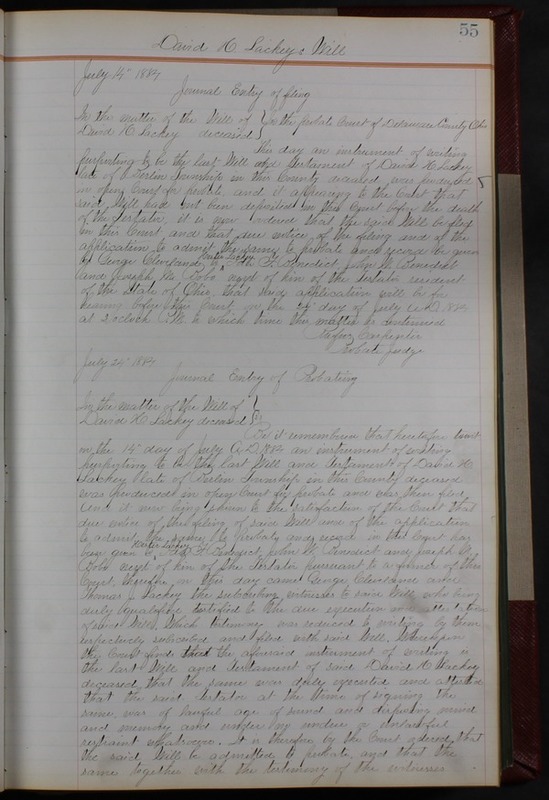 55
David H. Lackeys Will
July 14th 1884
Journal Entry of filing
In the matter of the Will of } In the probate Court of Delaware County Ohio
David H Lackey deceased }
This day an instrument of writing
purporting to be the last Will and Testament of David H Lackey
late of Berlin Township in this County deceased was produced
in open Court for probate and it appearing to the Court that
said Will had not been deposited in this Court before the death
of the testator, it is now ordered that the said Will be filed
in this Court and that due notice of the filing and of the
application to admit the same to probate and record be given
to George Cleveland, F. Benedict, John W. Benedict
and Joseph M. next of kin of the testator resident
of the State of Ohio, that said application will be for
hearing before this Court on the 24th day of July A.D. 1884
at o'clock to which time this matter is continued
Carpenter
Probate Judge
July 24th 1884
Journal Entry of Probating
In the matter of the Will of }
David H Lackey deceased }
Be it remembered that heretofore to wit
on the 14th day of July A.D. 1884 an instrument of writing
purporting to be the last Will and Testament of David H
Lackey late of Berlin Township in this County deceased
was produced in open Court for probate and was then filed
and it now being shown to the satisfaction of the Court that
due notice of the filing of said Will and of the application
to admit the same to probate and record in this Court has
been given to F. Benedict, John W. Benedict and Joseph M.
next of kin of the testator pursuant to a former of this
Court, therefore on this day came George Cleveland and
Thomas Lackey the subscribing witnesses to said Will who being
duly qualified testified to the due execution and
of said Will, which testimony was reduced to writing by them
respectively subscribed and filed with said Will, Whereupon
the Court find that the aforesaid instrument of writing is
the last Will and Testament of said David H Lackey
deceased, that the same was duly executed and attested
that the said testator at the time of signing the
same was of lawful age of sound and disposing mind
and memory and under no undue or unlawful
restraint whatsoever. It is therefore by the Court ordered that
the said Will be admitted to probate, and that the
same together with the testimony of the witnesses